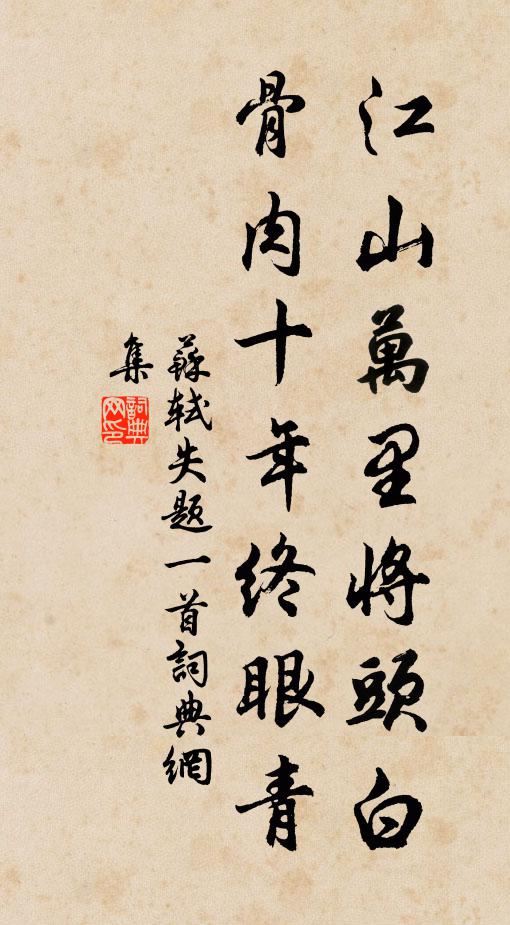 江山萬里將頭白
骨肉十年終眼青
蘇軾失題一首詞典網
集
詞典網印